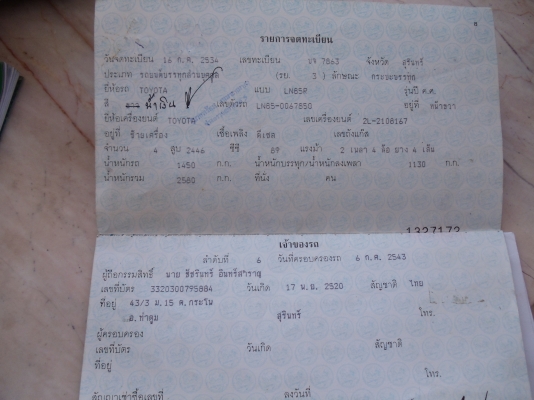 รายการจดทะเบียน
วันจดทะเบียน 16 ก.ค. 2534 เลขทะเบียน บจ 7863 จังหวัด สุรินทร์
ประเภท รถยนต์บรรทุกส่วนบุคคล (รย. 3 ) ลักษณะ กระบะบรรทุก
ยี่ห้อรถ TOYOTA แบบ LN85R รุ่นปี ค.ศ.
สี น้ำเงิน เลขตัวรถ LN85-0067850 อยู่ที่ หน้าขวา
ยี่ห้อเครื่องยนต์ TOYOTA เลขเครื่องยนต์ 2L-2108167
อยู่ที่ ซ้ายเครื่อง เชื้อเพลิง ดีเซล เลขถังแก๊ส
จำนวน 4 สูบ 2446 ซีซี 89 แรงม้า 2 เพลา 4 ล้อ ยาง 4 เส้น
น้ำหนักรถ 1450 ก.ก. น้ำหนักบรรทุก/น้ำหนักลงเพลา 1130 ก.ก.
น้ำหนักรวม 2580 ก.ก. ที่นั่ง คน
1327172
เจ้าของรถ
ลำดับที่ 6 วันที่ครอบครองรถ 6 ก.ค. 2543
ผู้ถือกรรมสิทธิ์ นาย
เลขที่บัตร 3320300795884 วันเกิด 17 พ.ย. 2520 สัญชาติ ไทย
ที่อยู่ 43/3 ม.15 ต.กระโพ
อ.ท่าตูม สุรินทร์ โทร.
ผู้ครอบครอง
เลขที่บัตร วันเกิด สัญชาติ
ที่อยู่
โทร.
สัญญาเช่าซื้อเลขที่ ลงวันที่